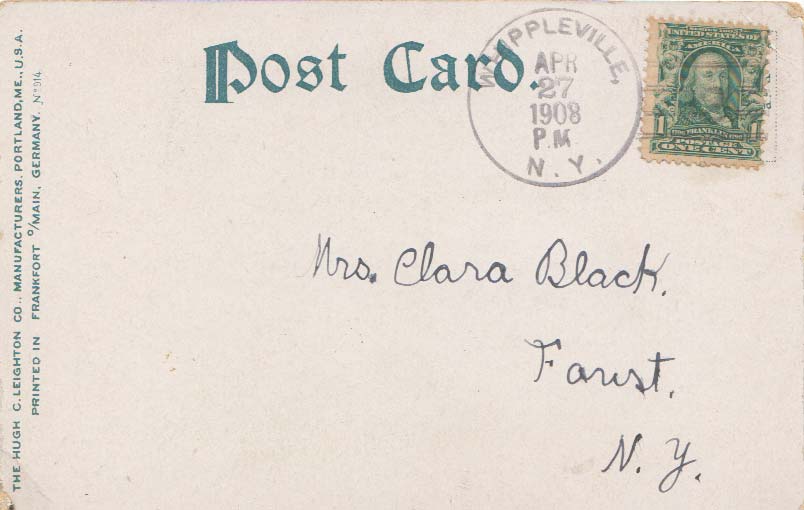 Post Card.
WHIPPLEVILLE,
APR
27
1908
P.M.
N.Y.
SERIES 1902
UNITED STATES OF
AMERICA
1 1
FRANKLIN
POSTAGE
ONE CENT
Mrs. Clara Black.
Forest.
N.Y.
THE HUGH C. LEIGHTON CO., MANUFACTURERS. PORTLAND, ME., U.S.A.
PRINTED IN FRANKFORT o/MAIN, GERMANY. No 914